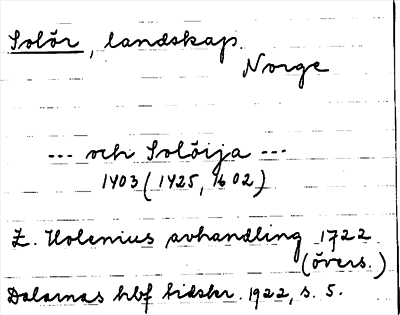 Solör, landskap.
Norge
--- och Solöija ---
1403 (1425, 1602)
Z. Holenius avhandling 1722
(övers.)
Dalarnas hbf tidskr. 1922, s. 5.